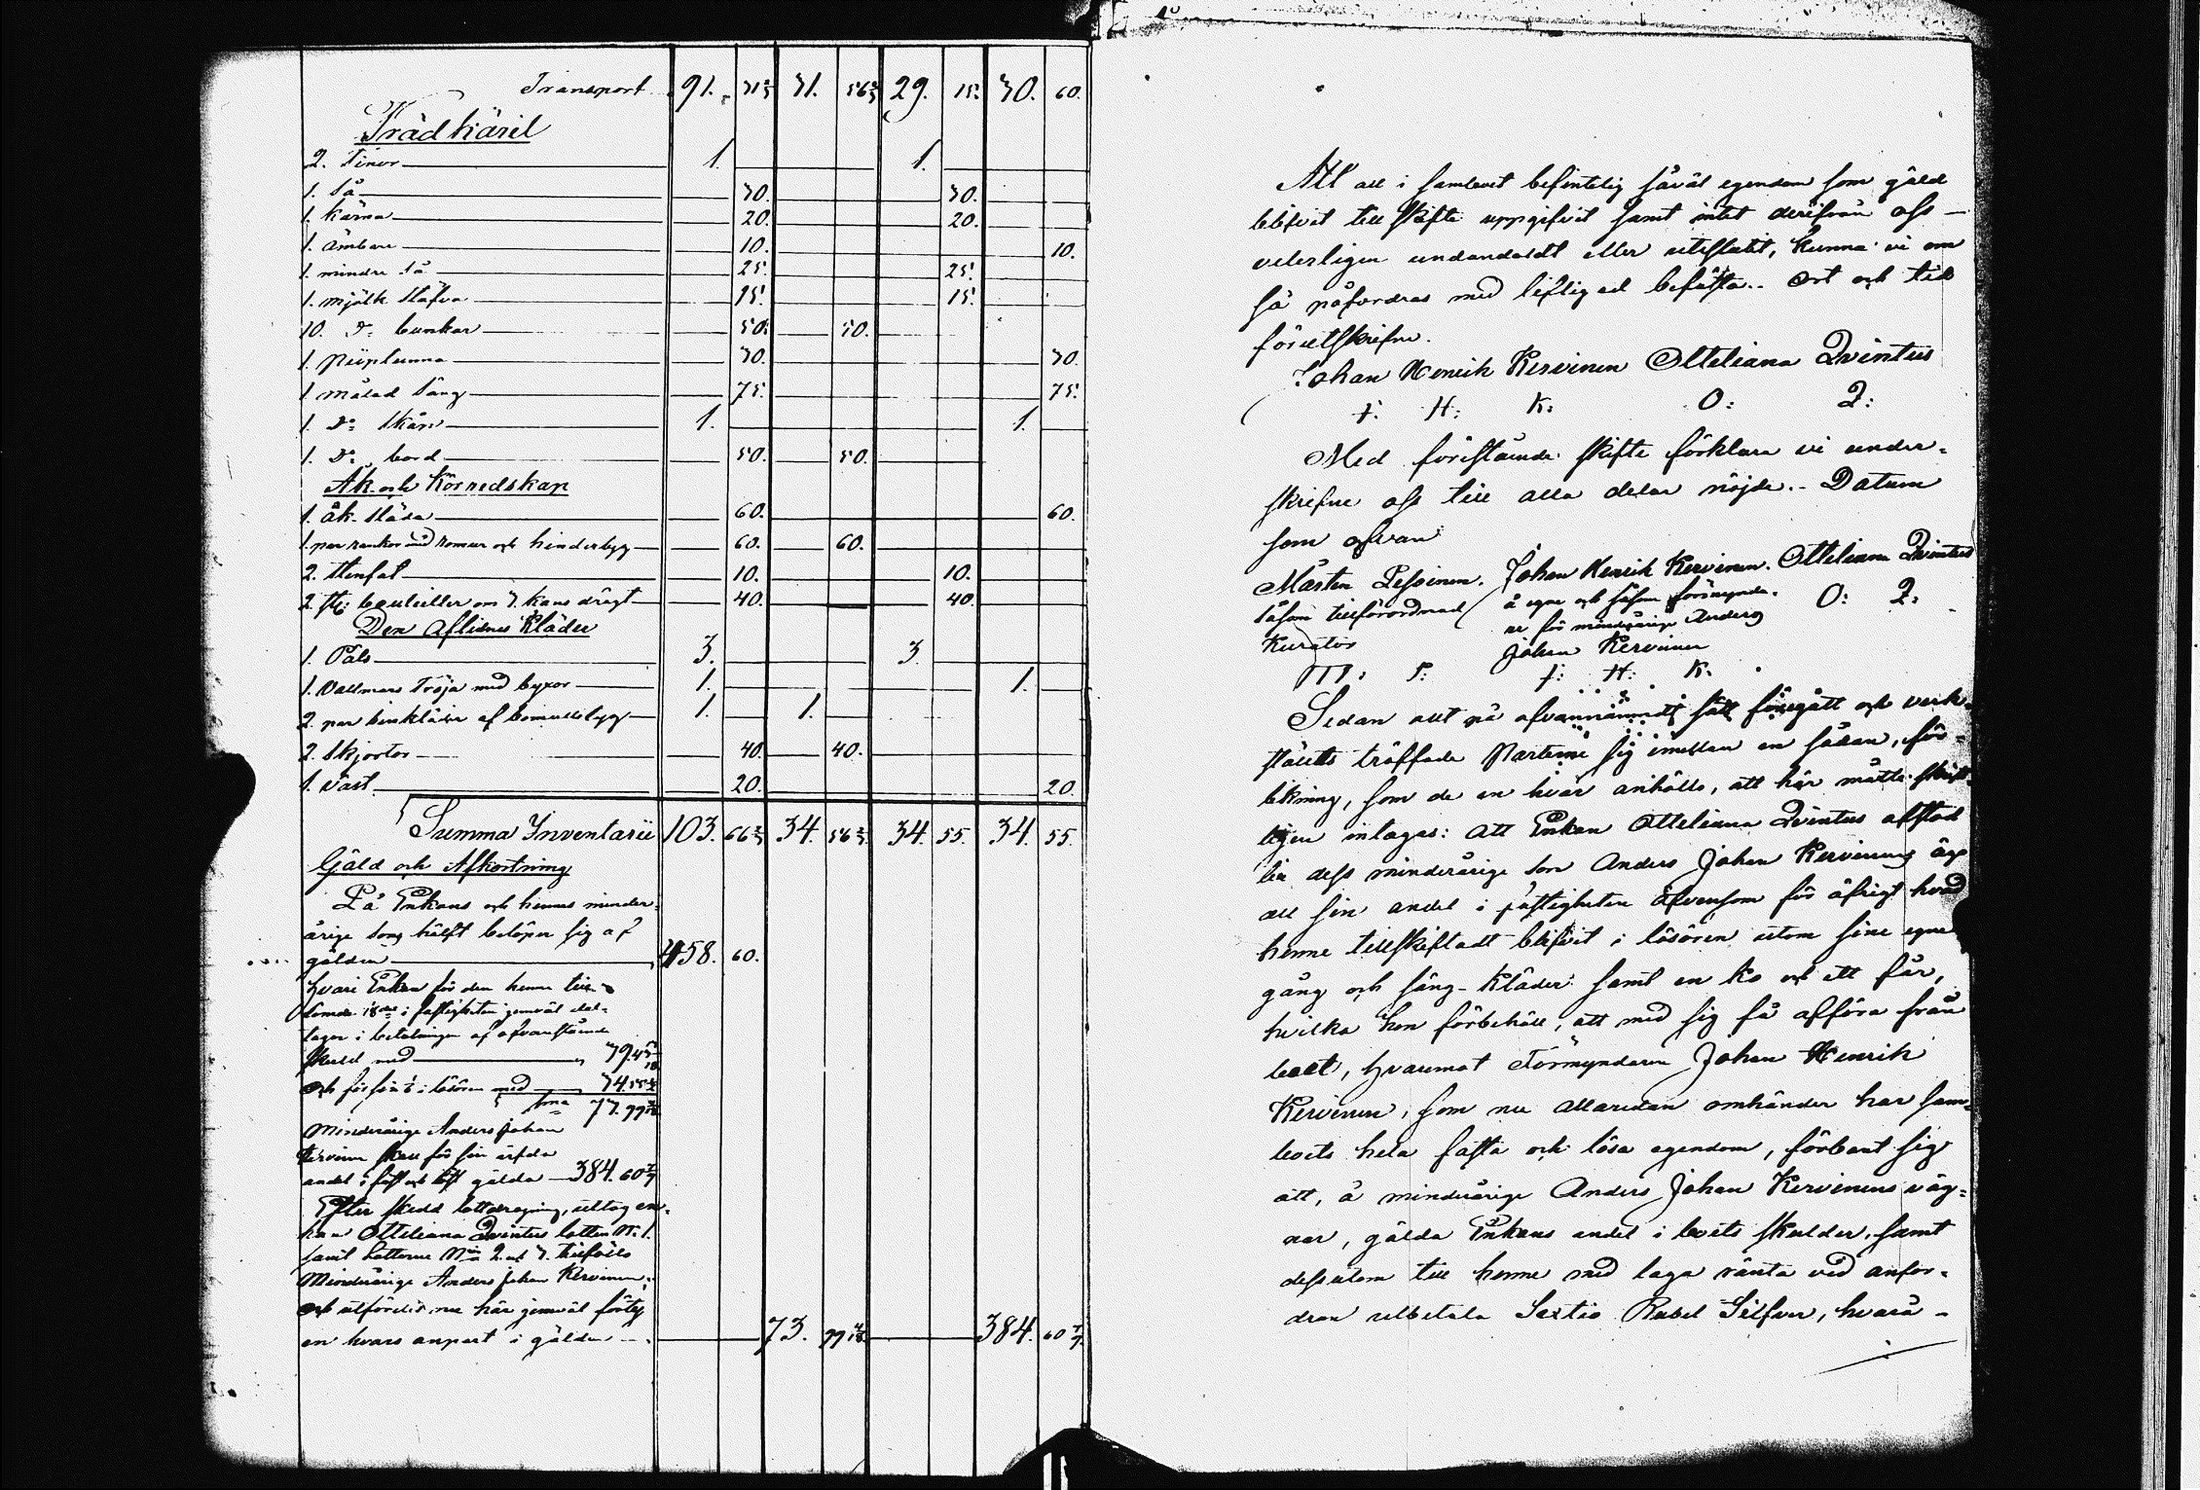 Transport 91. 31 2/3 31. 56 2/3 29. 15. 30. 60.
Trädkäril
2. Tinor 1. 1.
1. Så 30. 30.
1. kärna 20. 20.
1. ämbare 10. 10.
1. mindre Så 25. 25.
1. mjölk stäfva 15. 15.
10. Do bunkar 50. 50.
1. 30. 30.
1. målad Säng 75. 75.
1. Do Skåp 1. 1.
1. Do bord 50. 50.
Åk- och Körredskap
1. åk-släda 60. 60.
1. par med och hinderbyg 60. 60.
2. stenfat 10. 10.
2. st: bouteiller om 3. kans drägt 40. 40.
Den Aflidnes Kläder
1. Päls 3. 3.
1. Vallmars Tröja med byxor 1. 1.
2. par benkläder af bomullstyg 1. 1.
2. Skjortor 40. 40.
1. Väst 20. 20.
Summa Inventarii 103. 66 2/3 34. 56 2/3 34. 55. 34. 55.
Gäld och Afkortning
På Enkans och hennes minder-
årige Sons hälft belöper sig af
gälden 458. 60.
hvari Enkan för den henne till-
komde i fastigheten jemväl del-
tager i betalningen af ofvanstående
skuld med 39.
och för sin i lösören med 34.
Sma
Minderårige Anders Johan
Kervinen skall för sin ärfda
andel i fast och löst gälda 384. 60 7/9
Efter skedd lottdragning, uttog en-
kan Otteliana Qvintus lotten N: 1.
samt Lotterne 2. och 3. tillföllo
Minderårige Anders Johan Kervinen;
och utfördes nu här jemväl
en hvars anpart i gälden 73. 384. 60 7/9

Att all i samlevet befintelig såväl egendom som gäld
blifvit till skifte uppgifvit samt intet derifrån oss
veterligen undandoldt eller uteslutit, kunna vi om
så påfordras med liflig ed befästa.. Ort och tid
förutskrefne.
Johan Henrik Kervinen Otteliana Qvintus
J: H: K: O: Q:
Med förestående skifte förklara vi under-
skrefne oss till alla delar nöjde.. Datum
som ofvan
Mårten Johan Henrik Kervinen. Otteliana Qvintus
såsom tillförordnad å egne och såsom förmynda- O: Q:
Kurator re för minderårige Anders
Johan Kervinen
M: P: J: H: K:
Sedan allt på ofvannämndt sätt föregått och verk-
stäldts träffade Parterne sig emellan en sådan, för-
likning, som de en hvar anhöllo, att här måtte skrift-
ligen intagas: att Enkan Otteliana Qvintus afstod
till dess minderårige son Anders Johan Kervinens
all sin andel i fastigheten äfvensom för öfrigt hvad
henne tillskiftadt blifvit i lösören utom sine egne
gång och säng-Kläder samt en ko och ett får,
hvilka hon förbehöll, att med sig få afföra från
boet, hvaremot Förmyndaren Johan Henrik
Kervinen, som nu allaredan omhänder har sam-
levets hela fasta och lösa egendom, förband sig
att, å minderårige Anders Johan Kervinens väg-
nar, gälda Enkans andel i levets skulder, samt
dessutom till henne med laga ränta vid anfor-
dran utbetala Sextio Rubel Silfver, hvarå -